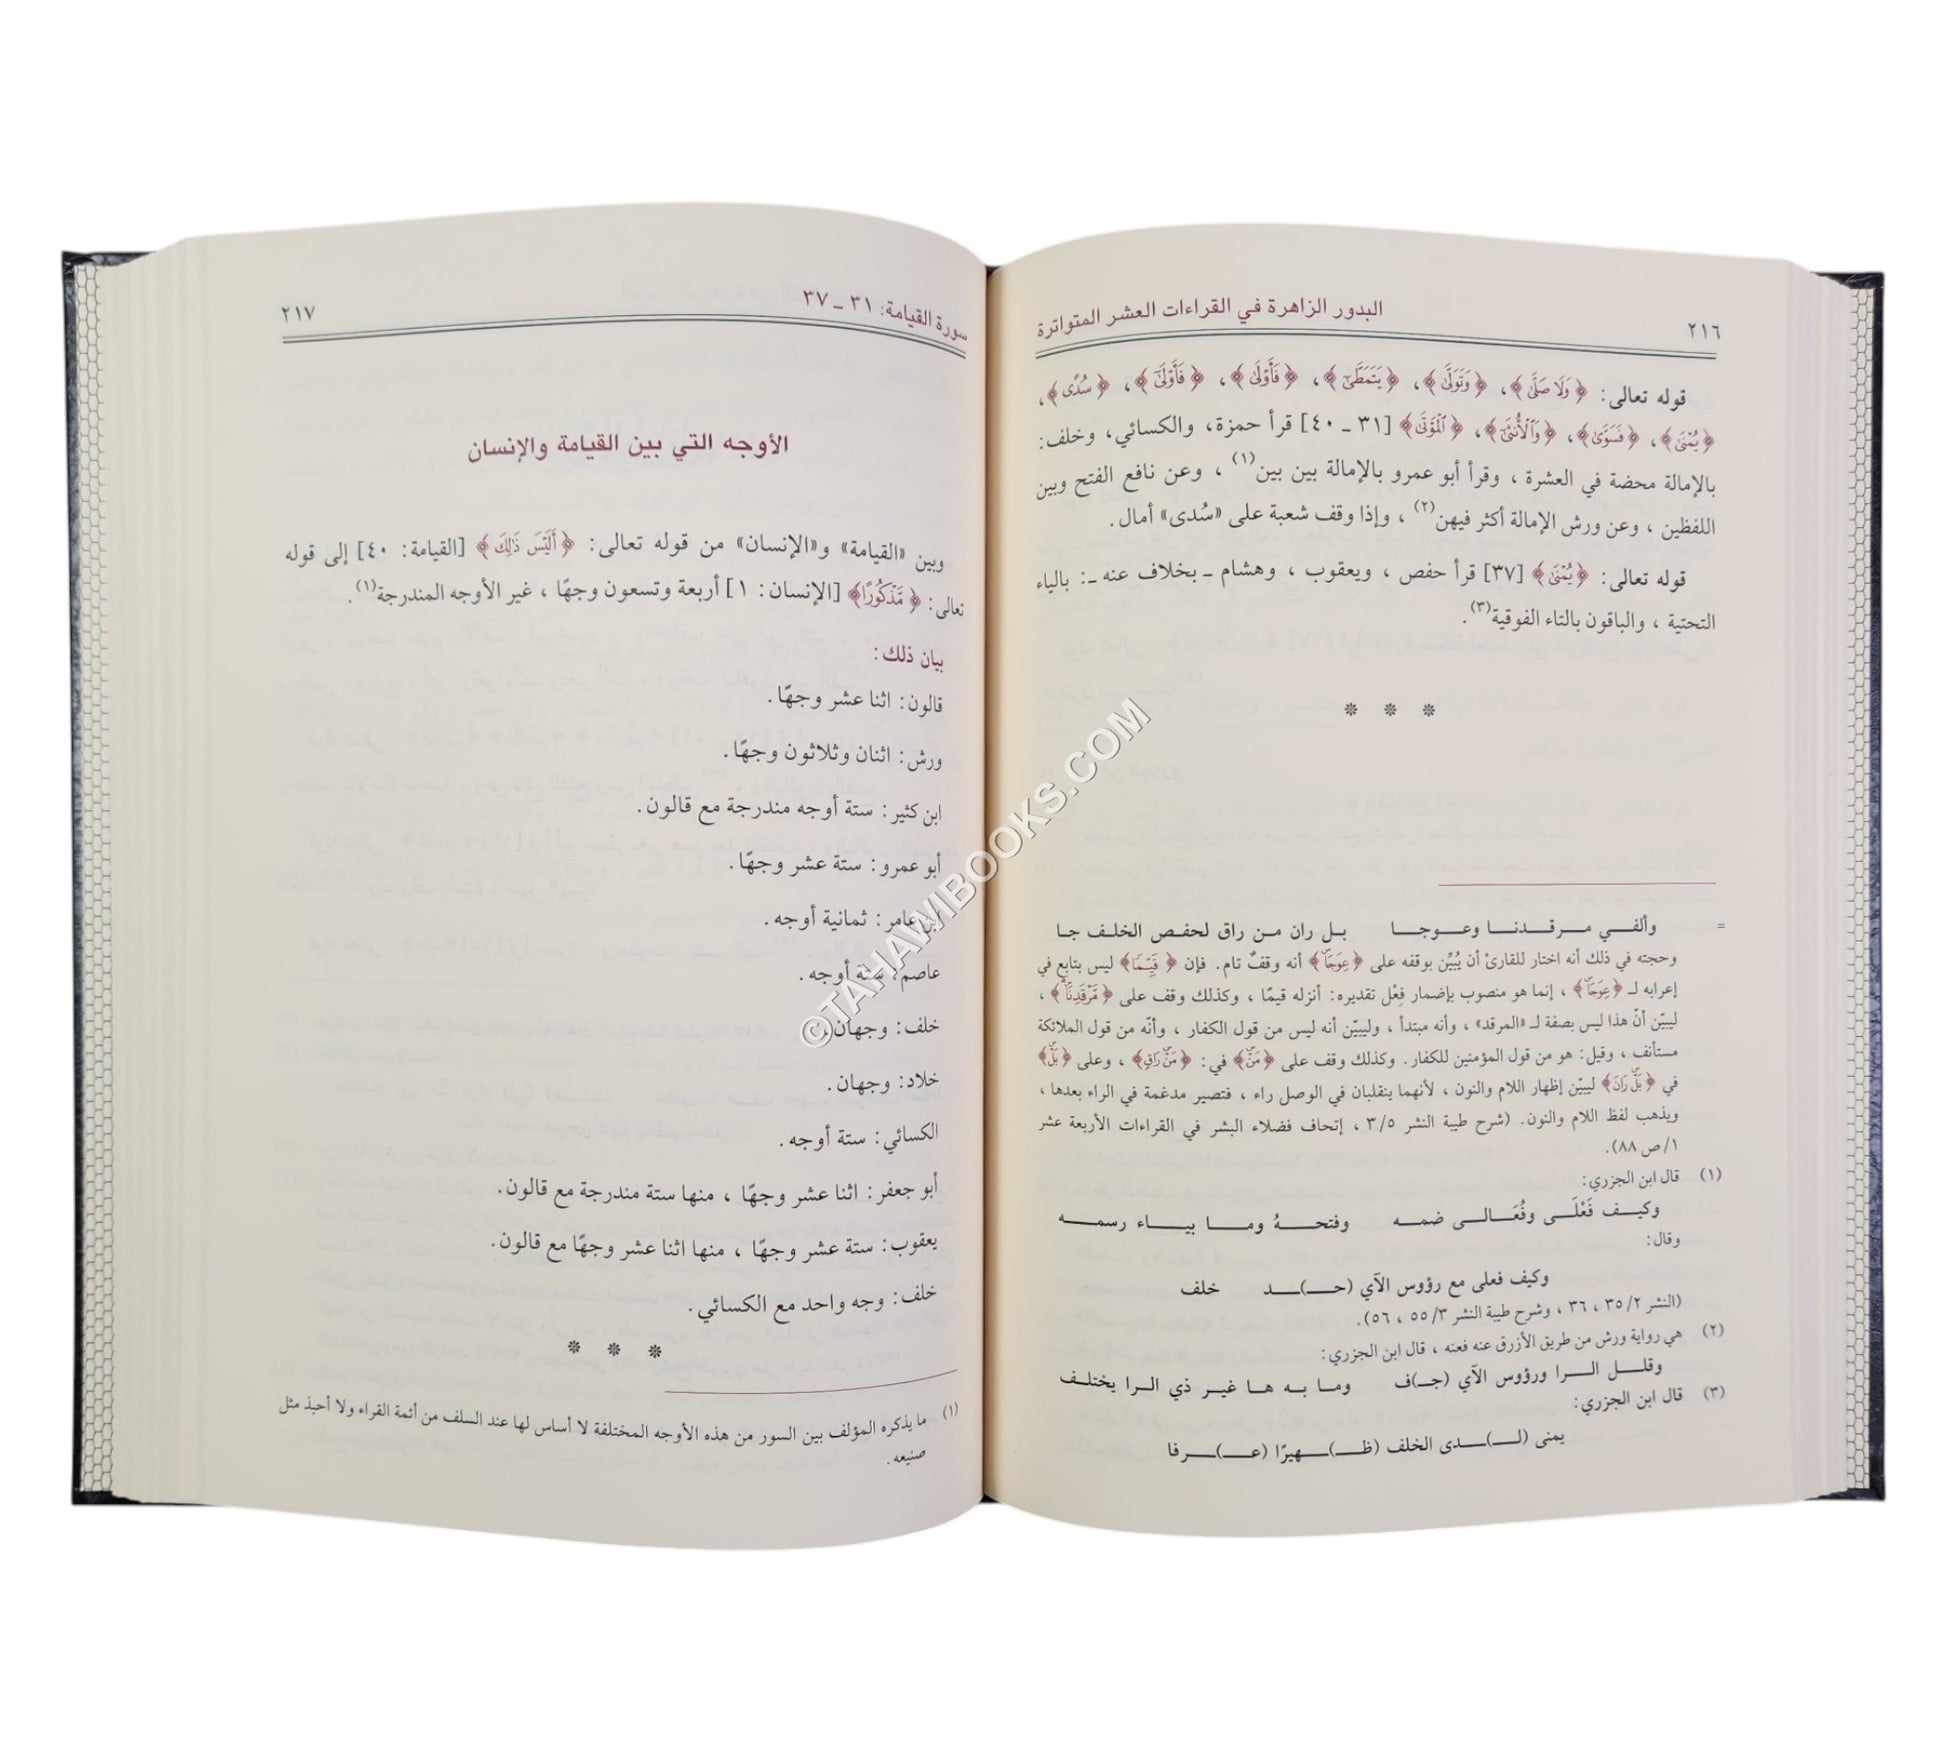 ٢١٦
البدور الزاهرة في القراءات العشر المتواترة
قوله تعالى: ﴿وَلَا صَلَّىٰ﴾، ﴿وَتَوَلَّىٰ﴾، ﴿يَتَمَطَّىٰٓ﴾، ﴿فَأَوْلَىٰ﴾، ﴿فَأَوْلَىٰٓ﴾، ﴿سُدًى﴾،
﴿يُمْنَىٰ﴾، ﴿فَسَوَّىٰ﴾، ﴿وَٱلْأُنثَىٰٓ﴾، ﴿ٱلْمَوْتَىٰ﴾ [٣١ ـ ٤٠] قرأ حمزة، والكسائي، وخلف:
بالإمالة محضة في العشرة، وقرأ أبو عمرو بالإمالة بين بين(١)، وعن نافع الفتح وبين
اللفظين، وعن ورش الإمالة أكثر فيهن(٢)، وإذا وقف شعبة على «سُدى» أمال.
قوله تعالى: ﴿يُمْنَىٰ﴾ [٣٧] قرأ حفص، ويعقوب، وهشام ـ بخلاف عنه ـ: بالياء
التحتية، والباقون بالتاء الفوقية(٣).
* * *
= وألفي مرقدنا وعوجا بل ران من راق لحفص الخلف جا
وحجته في ذلك أنه اختار للقارئ أن يُبيِّن بوقفه على ﴿عِوَجَا﴾ أنه وقفٌ تام. فإن ﴿قَيِّمًا﴾ ليس بتابع في
إعرابه لـ ﴿عِوَجَا﴾، إنما هو منصوب بإضمار فِعْل تقديره: أنزله قيمًا، وكذلك وقف على ﴿مَّرْقَدِنَا﴾،
ليبيّن أنّ هذا ليس بصفة لـ «المرقد»، وأنه مبتدأ، وليبيّن أنه ليس من قول الكفار، وأنّه من قول الملائكة
مستأنف، وقيل: هو من قول المؤمنين للكفار. وكذلك وقف على ﴿مَنْ﴾ في: ﴿مَنْ رَاقٍ﴾، وعلى ﴿بَلْ﴾
في ﴿بَلْ رَانَ﴾ ليبيّن إظهار اللام والنون، لأنهما ينقلبان في الوصل راء، فتصير مدغمة في الراء بعدها،
ويذهب لفظ اللام والنون. (شرح طيبة النشر ٣/٥، إتحاف فضلاء البشر في القراءات الأربعة عشر
١/ص ٨٨).
(١) قال ابن الجزري:
وكيف فَعْلَى وفُعَالى ضمه وفتحهُ وما بياء رسمه
وقال:
وكيف فعلى مع رؤوس الآي (حـ)ـد خلف
(النشر ٢/ ٣٥، ٣٦، وشرح طيبة النشر ٣/ ٥٥، ٥٦).
(٢) هي رواية ورش من طريق الأزرق عنه فعنه، قال ابن الجزري:
وقلل الرا ورؤوس الآي (جـ)ف وما به ها غير ذي الرا يختلف
(٣) قال ابن الجزري:
يمنى (لـ)ـدى الخلف (ظـ)ـهيرًا (عـ)ـرفا
سورة القيامة: ٣١ ـ ٣٧
٢١٧
الأوجه التي بين القيامة والإنسان
وبين «القيامة» و«الإنسان» من قوله تعالى: ﴿أَلَيْسَ ذَٰلِكَ﴾ [القيامة: ٤٠] إلى قوله
تعالى: ﴿مَّذْكُورًا﴾ [الإنسان: ١] أربعة وتسعون وجهًا، غير الأوجه المندرجة(١).
بيان ذلك:
قالون: اثنا عشر وجهًا.
ورش: اثنان وثلاثون وجهًا.
ابن كثير: ستة أوجه مندرجة مع قالون.
أبو عمرو: ستة عشر وجهًا.
ابن عامر: ثمانية أوجه.
عاصم: ستة أوجه.
خلف: وجهان.
خلاد: وجهان.
الكسائي: ستة أوجه.
أبو جعفر: اثنا عشر وجهًا، منها ستة مندرجة مع قالون.
يعقوب: ستة عشر وجهًا، منها اثنا عشر وجهًا مع قالون.
خلف: وجه واحد مع الكسائي.
* * *
(١) ما يذكره المؤلف بين السور من هذه الأوجه المختلفة لا أساس لها عند السلف من أئمة القراء ولا أحبذ مثل
صنيعه.
©TAHAWIBOOKS.COM